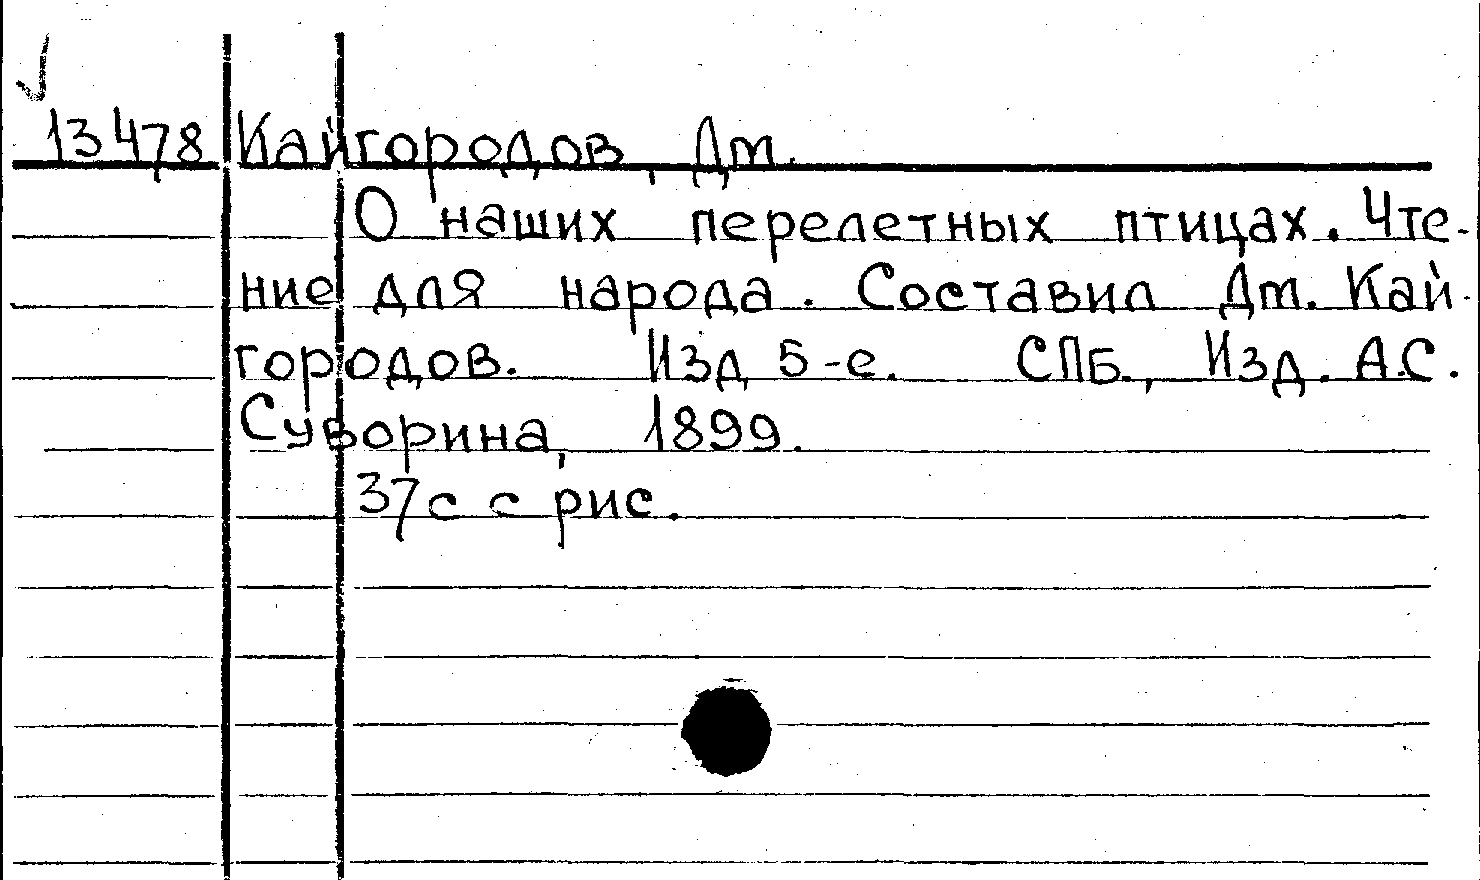 13478 Кайгородов, Дм.
О наших перелетных птицах. Чте-
ние для народа. Составил Дм. Кай-
городов. Изд 5-е. СПБ, Изд. А.С.
Суворина, 1899.
37с с рис.